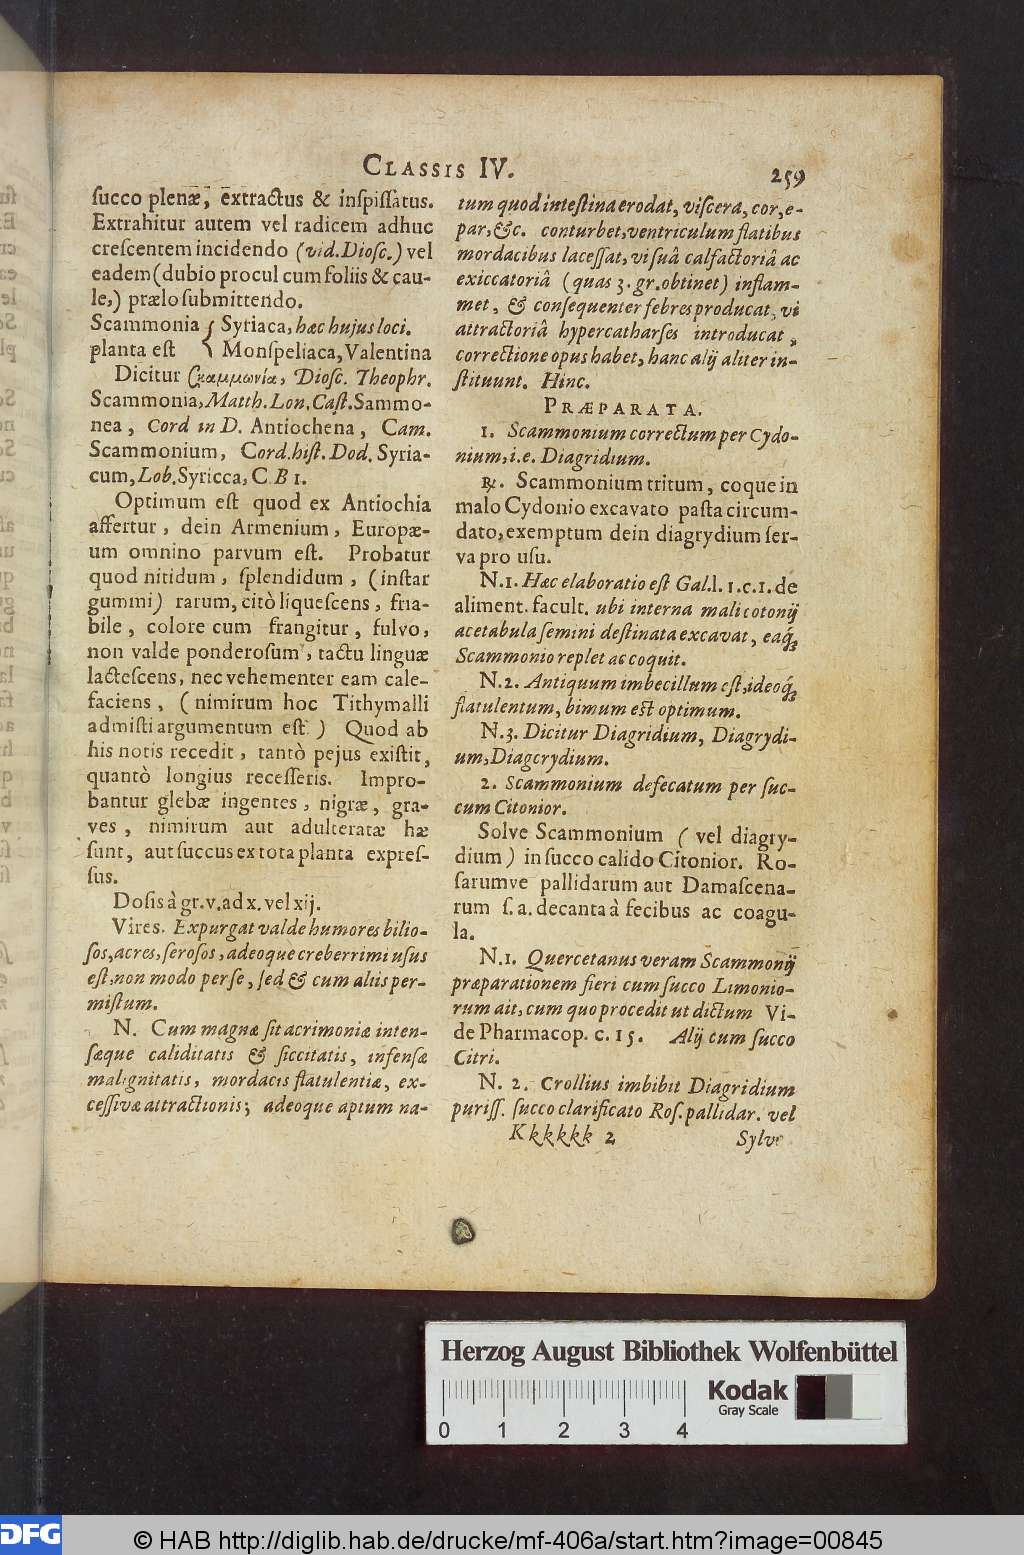 CLASSIS IV.
259
ſucco plenæ, extractus & inſpiſſatus.
Extrahitur autem vel radicem adhuc
creſcentem incidendo (vid. Dioſc.) vel
eadem (dubio procul cum foliis & cau-
le,) prælo ſubmittendo.
Scammonia { Syriaca, hæc hujus loci.
planta eſt { Monſpeliaca, Valentina
Dicitur Σκαμμωνία, Dioſc. Theophr.
Scammonia, Matth. Lon. Caſt. Sammo-
nea, Cord in D. Antiochena, Cam.
Scammonium, Cord. hiſt. Dod. Syria-
cum, Lob. Syricca, C B 1.
Optimum eſt quod ex Antiochia
affertur, dein Armenium, Europæ-
um omnino parvum eſt. Probatur
quod nitidum, ſplendidum, (inſtar
gummi) rarum, citò liqueſcens, fria-
bile, colore cum frangitur, fulvo,
non valde ponderoſum, tactu linguæ
lacteſcens, nec vehementer eam cale-
faciens, (nimirum hoc Tithymalli
admiſti argumentum eſt) Quod ab
his notis recedit, tantò pejus exiſtit,
quantò longius receſſeris. Impro-
bantur glebæ ingentes, nigræ, gra-
ves, nimirum aut adulteratæ hæ
ſunt, aut ſuccus ex tota planta expreſ-
ſus.
Doſis à gr. v. ad x. vel xij.
Vires. Expurgat valde humores bilio-
ſos, acres, ſeroſos, adeoque creberrimi uſus
eſt, non modo per ſe, ſed & cum aliis per-
miſtum.
N. Cum magnæ ſit acrimoniæ inten-
ſæque caliditatis & ſiccitatis, infenſæ
malignitatis, mordacis flatulentiæ, ex-
ceſſivæ attractionis; adeoque aptum na-
tum quod inteſtina erodat, viſcera, cor, e-
par, &c. conturbet, ventriculum flatibus
mordacibus laceſſat, vi ſuâ calfactoriâ ac
exiccatoriâ (quas 3. gr. obtinet) inflam-
met, & conſequenter febres producat, vi
attractoriâ hypercatharſes introducat,
correctione opus habet, hanc alij aliter in-
ſtituunt. Hinc.
PRÆPARATA.
1. Scammonium correctum per Cydo-
nium, i.e. Diagridium.
℞. Scammonium tritum, coque in
malo Cydonio excavato paſta circum-
dato, exemptum dein diagrydium ſer-
va pro uſu.
N.1. Hæc elaboratio eſt Gal. l. 1. c. 1. de
aliment. facult. ubi interna mali cotonij
acetabula ſemini deſtinata excavat, eaq́;
Scammonio replet ac coquit.
N.2. Antiquum imbecillum eſt, ideoq́;
flatulentum, bimum eſt optimum.
N.3. Dicitur Diagridium, Diagrydi-
um, Diagcrydium.
2. Scammonium defecatum per ſuc-
cum Citonior.
Solve Scammonium (vel diagry-
dium) in ſucco calido Citonior. Ro-
ſarumve pallidarum aut Damaſcena-
rum ſ. a. decanta à fecibus ac coagu-
la.
N.1. Quercetanus veram Scammonij
præparationem fieri cum ſucco Limonio-
rum ait, cum quo procedit ut dictum Vi-
de Pharmacop. c. 15. Alij cum ſucco
Citri.
N. 2. Crollius imbibit Diagridium
puriſſ. ſucco clarificato Roſ. pallidar. vel
Kkkkkk 2
Sylve
Herzog August Bibliothek Wolfenbüttel
Kodak
Gray Scale
0 1 2 3 4
DFG © HAB http://diglib.hab.de/drucke/mf-406a/start.htm?image=00845